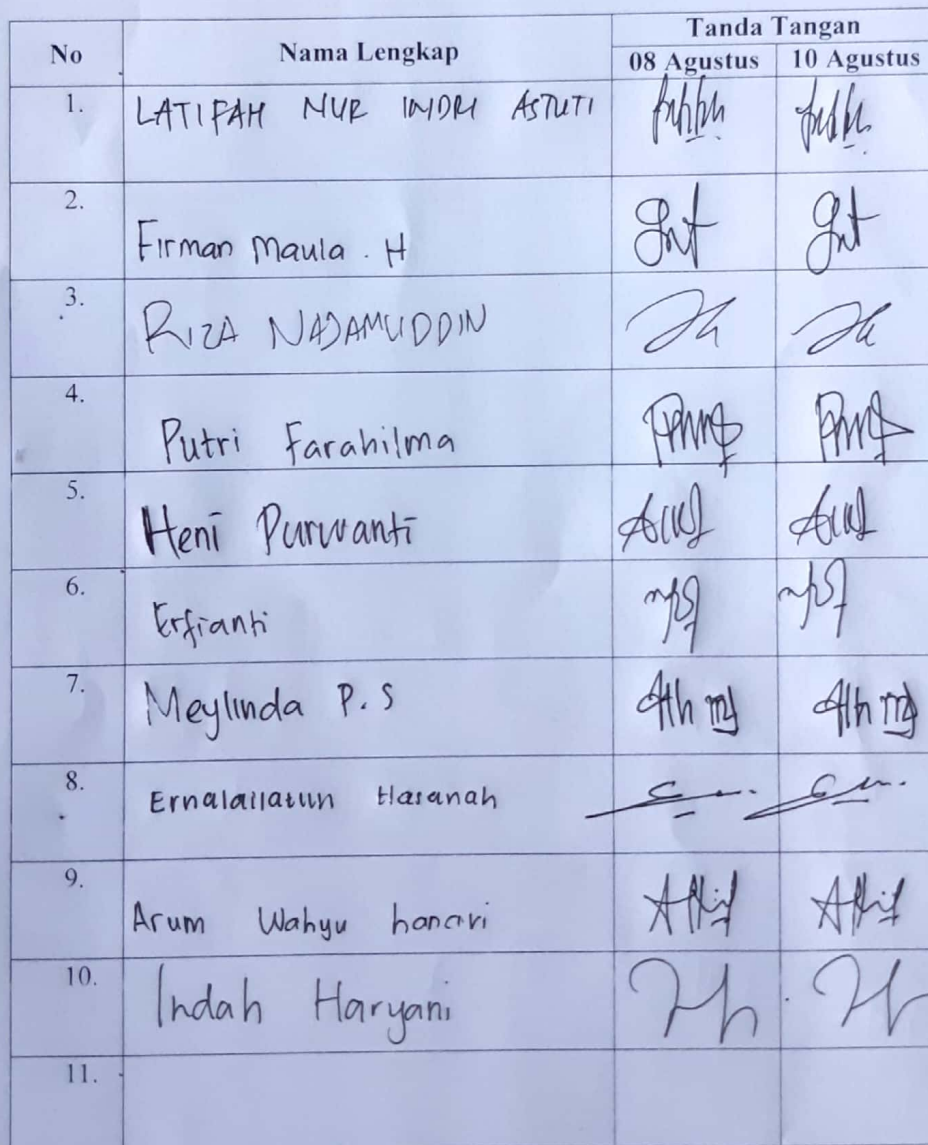 No Nama Lengkap Tanda Tangan
08 Agustus 10 Agustus
1. LATIFAH NUR INDRI ASTUTI
2. Firman Maula . H
3. RIZA NAJAMUDDIN
4. Putri Farahilma
5. Heni Purwanti
6. Erfianti
7. Meylinda P. S
8. Ernalailatun Hasanah
9. Arum Wahyu
10. Indah Haryani
11.